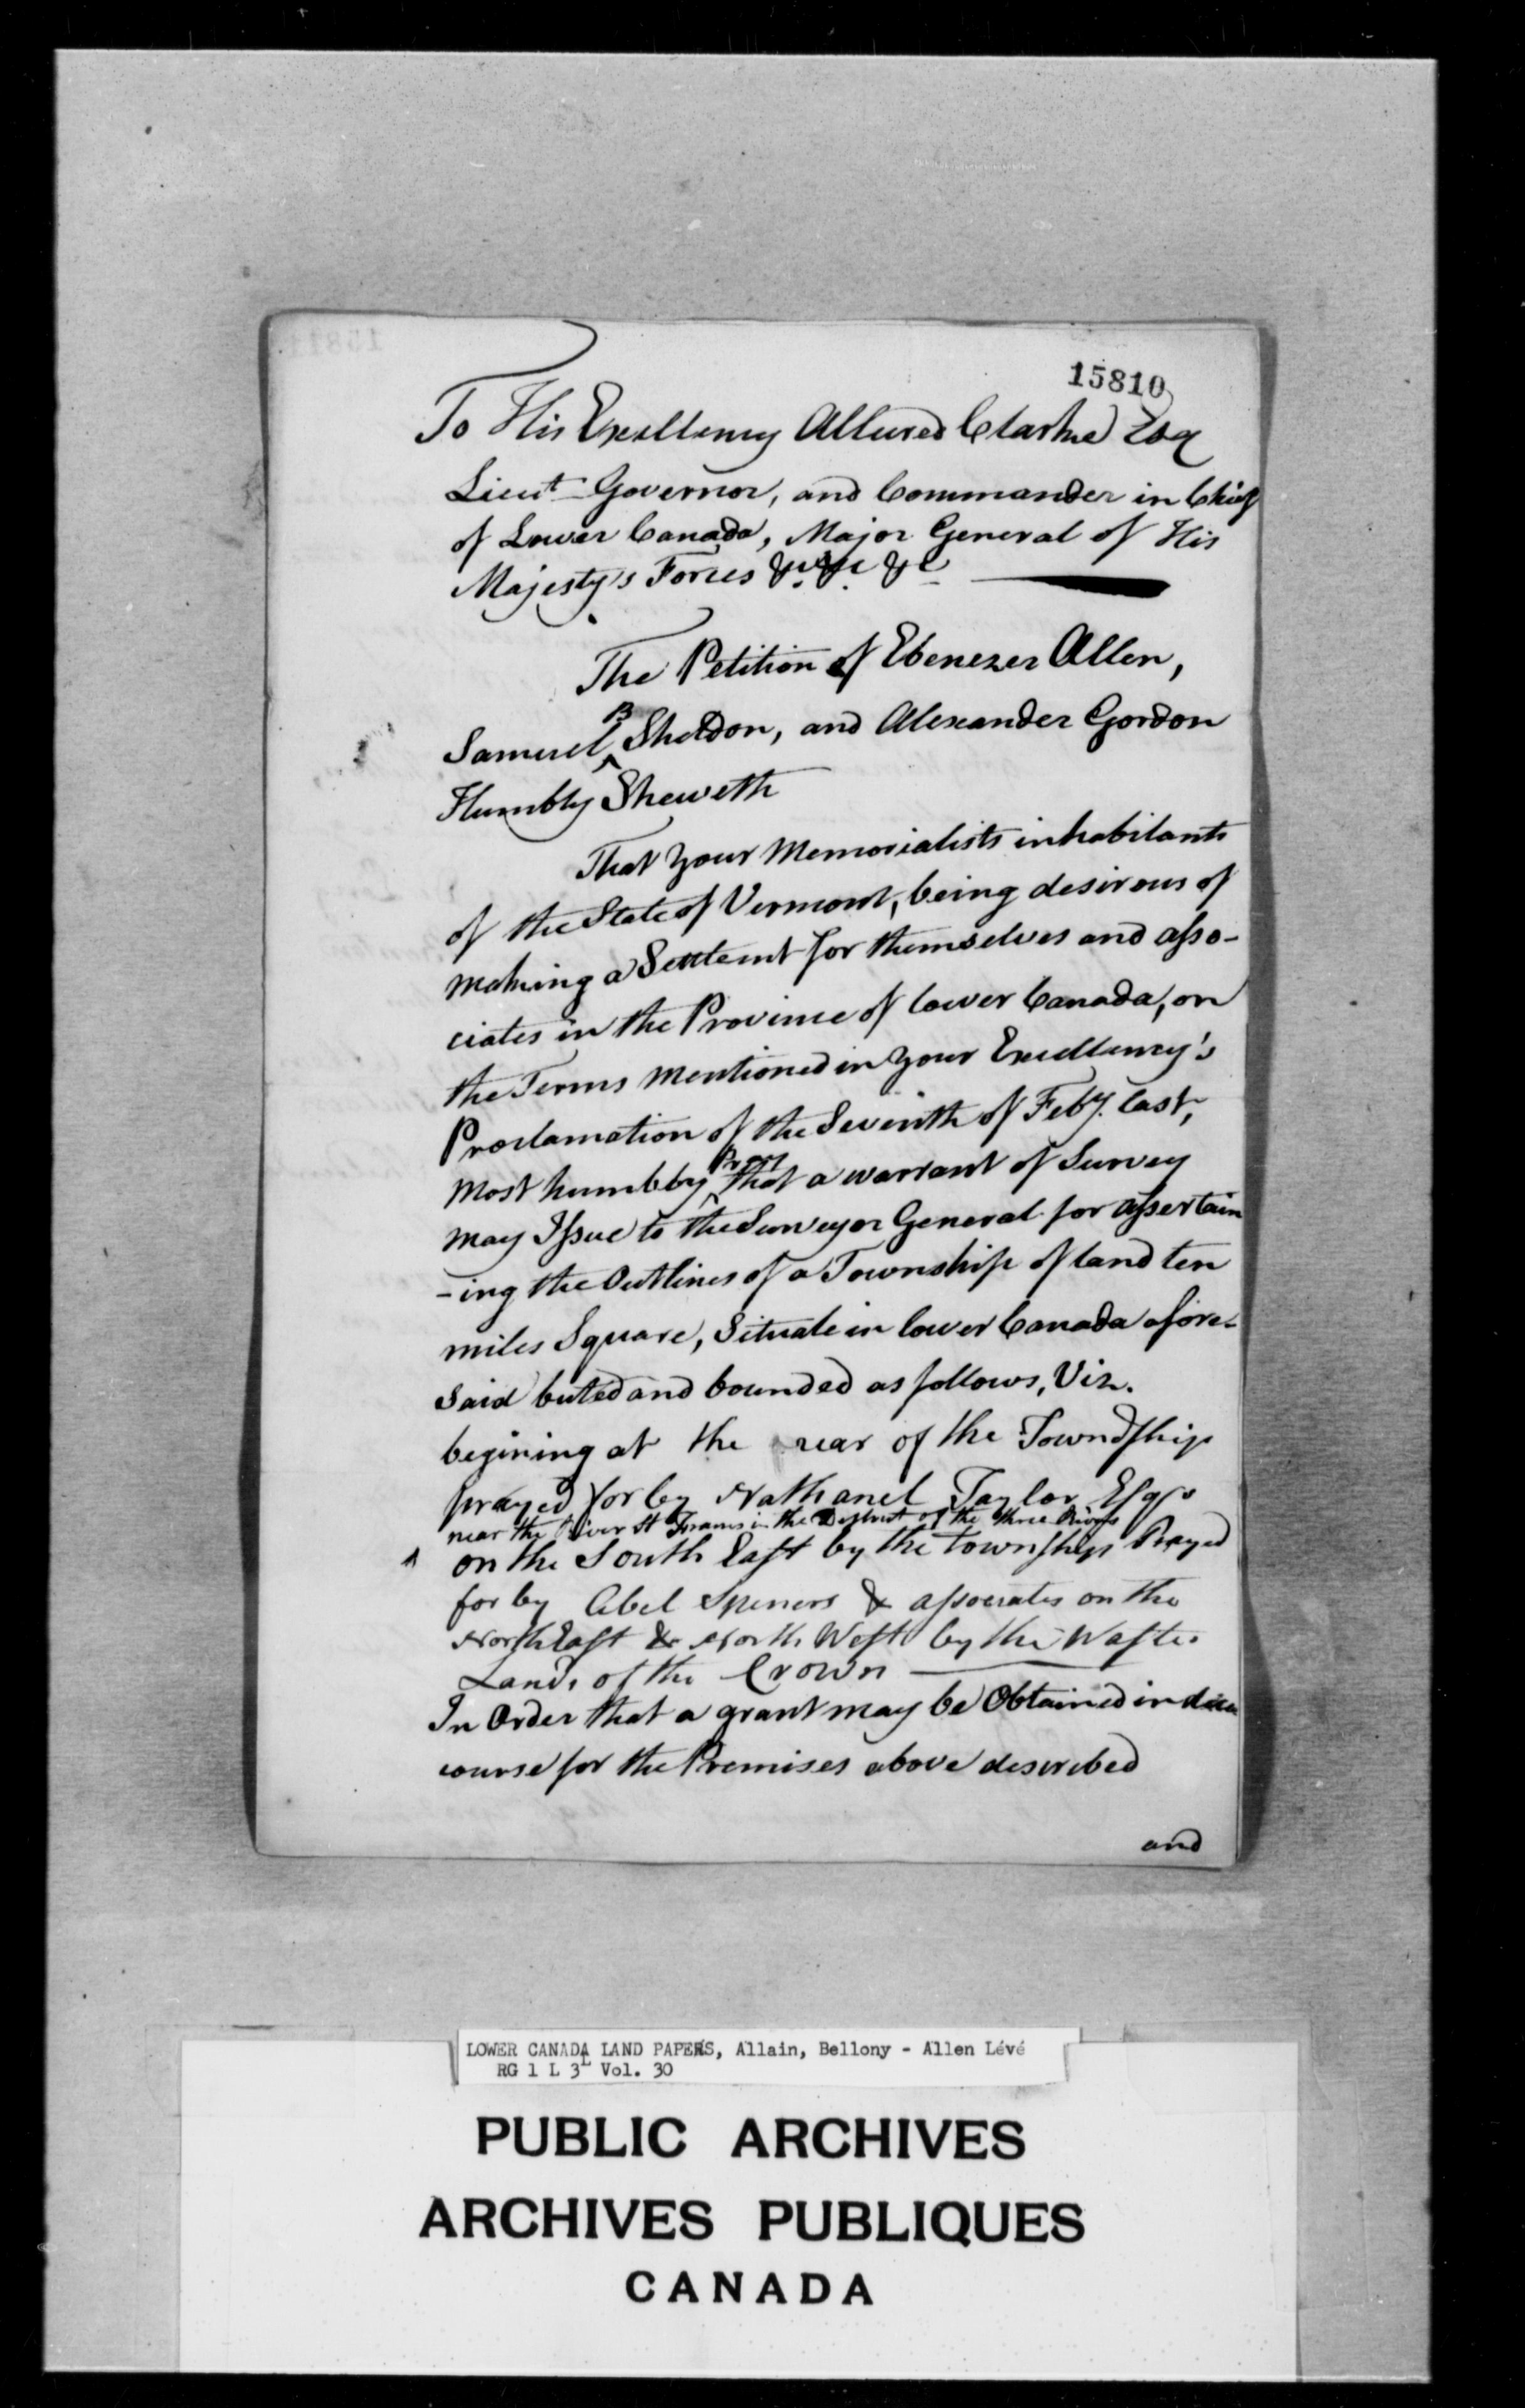 15810
To His Excellency Allured Clarke Esq
Lieut Governor, and Commander in Chief
of Lower Canada, Major General of His
Majesty's Forces &c &c &c
The Petition of Ebenezer Allen,
Samuel B Sheldon, and Alexander Gordon
Humbly Sheweth
That your Memorialists inhabitants
of the State of Vermont, being desirous of
making a Settlemt for themselves and asso-
ciates in the Province of lower Canada, on
the Terms mentioned in your Excellency's
Proclamation of the Seventh of Feby. last,
most humbly Pray that a warrant of Survey
may Issue to the Surveyor General for assertain
-ing the Outlines of a Township of land ten
miles Square, Situate in lower Canada afore-
said buted and bounded as follows, Viz.
begining at the rear of the Township
prayed for by Nathanel Taylor Esqr
near the River St Francis in the District of the three Rivers
on the South East by the township Prayed
for by Abel Spencer & associates on the
North East & North West by the Waste
Lands of the Crown
In Order that a grant may be Obtained in due
course for the Premises above described
and
LOWER CANADA LAND PAPERS, Allain, Bellony - Allen Lévé
RG 1 L 3L Vol. 30
PUBLIC ARCHIVES
ARCHIVES PUBLIQUES
CANADA